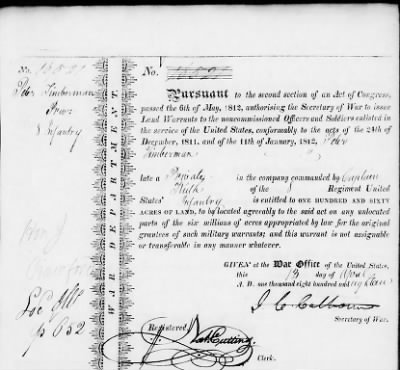 No.
Peter Timberman
Infantry
WAR DEPARTMENT.
No.
Pursuant to the second section of an Act of Congress,
passed the 6th of May, 1812, authorising the Secretary of War to issue
Land Warrants to the noncommissioned Officers and Soldiers enlisted in
the service of the United States, conformably to the acts of the 24th of
December, 1811, and of the 11th of January, 1812, Peter
Timberman
late a Private in the company commanded by Captain
of the 8 Regiment United
States' Infantry is entitled to ONE HUNDRED AND SIXTY
ACRES OF LAND, to be located agreeably to the said act on any unlocated
parts of the six millions of acres appropriated by law for the original
grantees of such military warrants; and this warrant is not assignable
or transferable in any manner whatever.
GIVEN at the War Office of the United States,
this 13 day of
A. D. one thousand eight hundred and eighteen
J. C. Calhoun
Secretary of War.
Registered,
Cutting
Clerk.